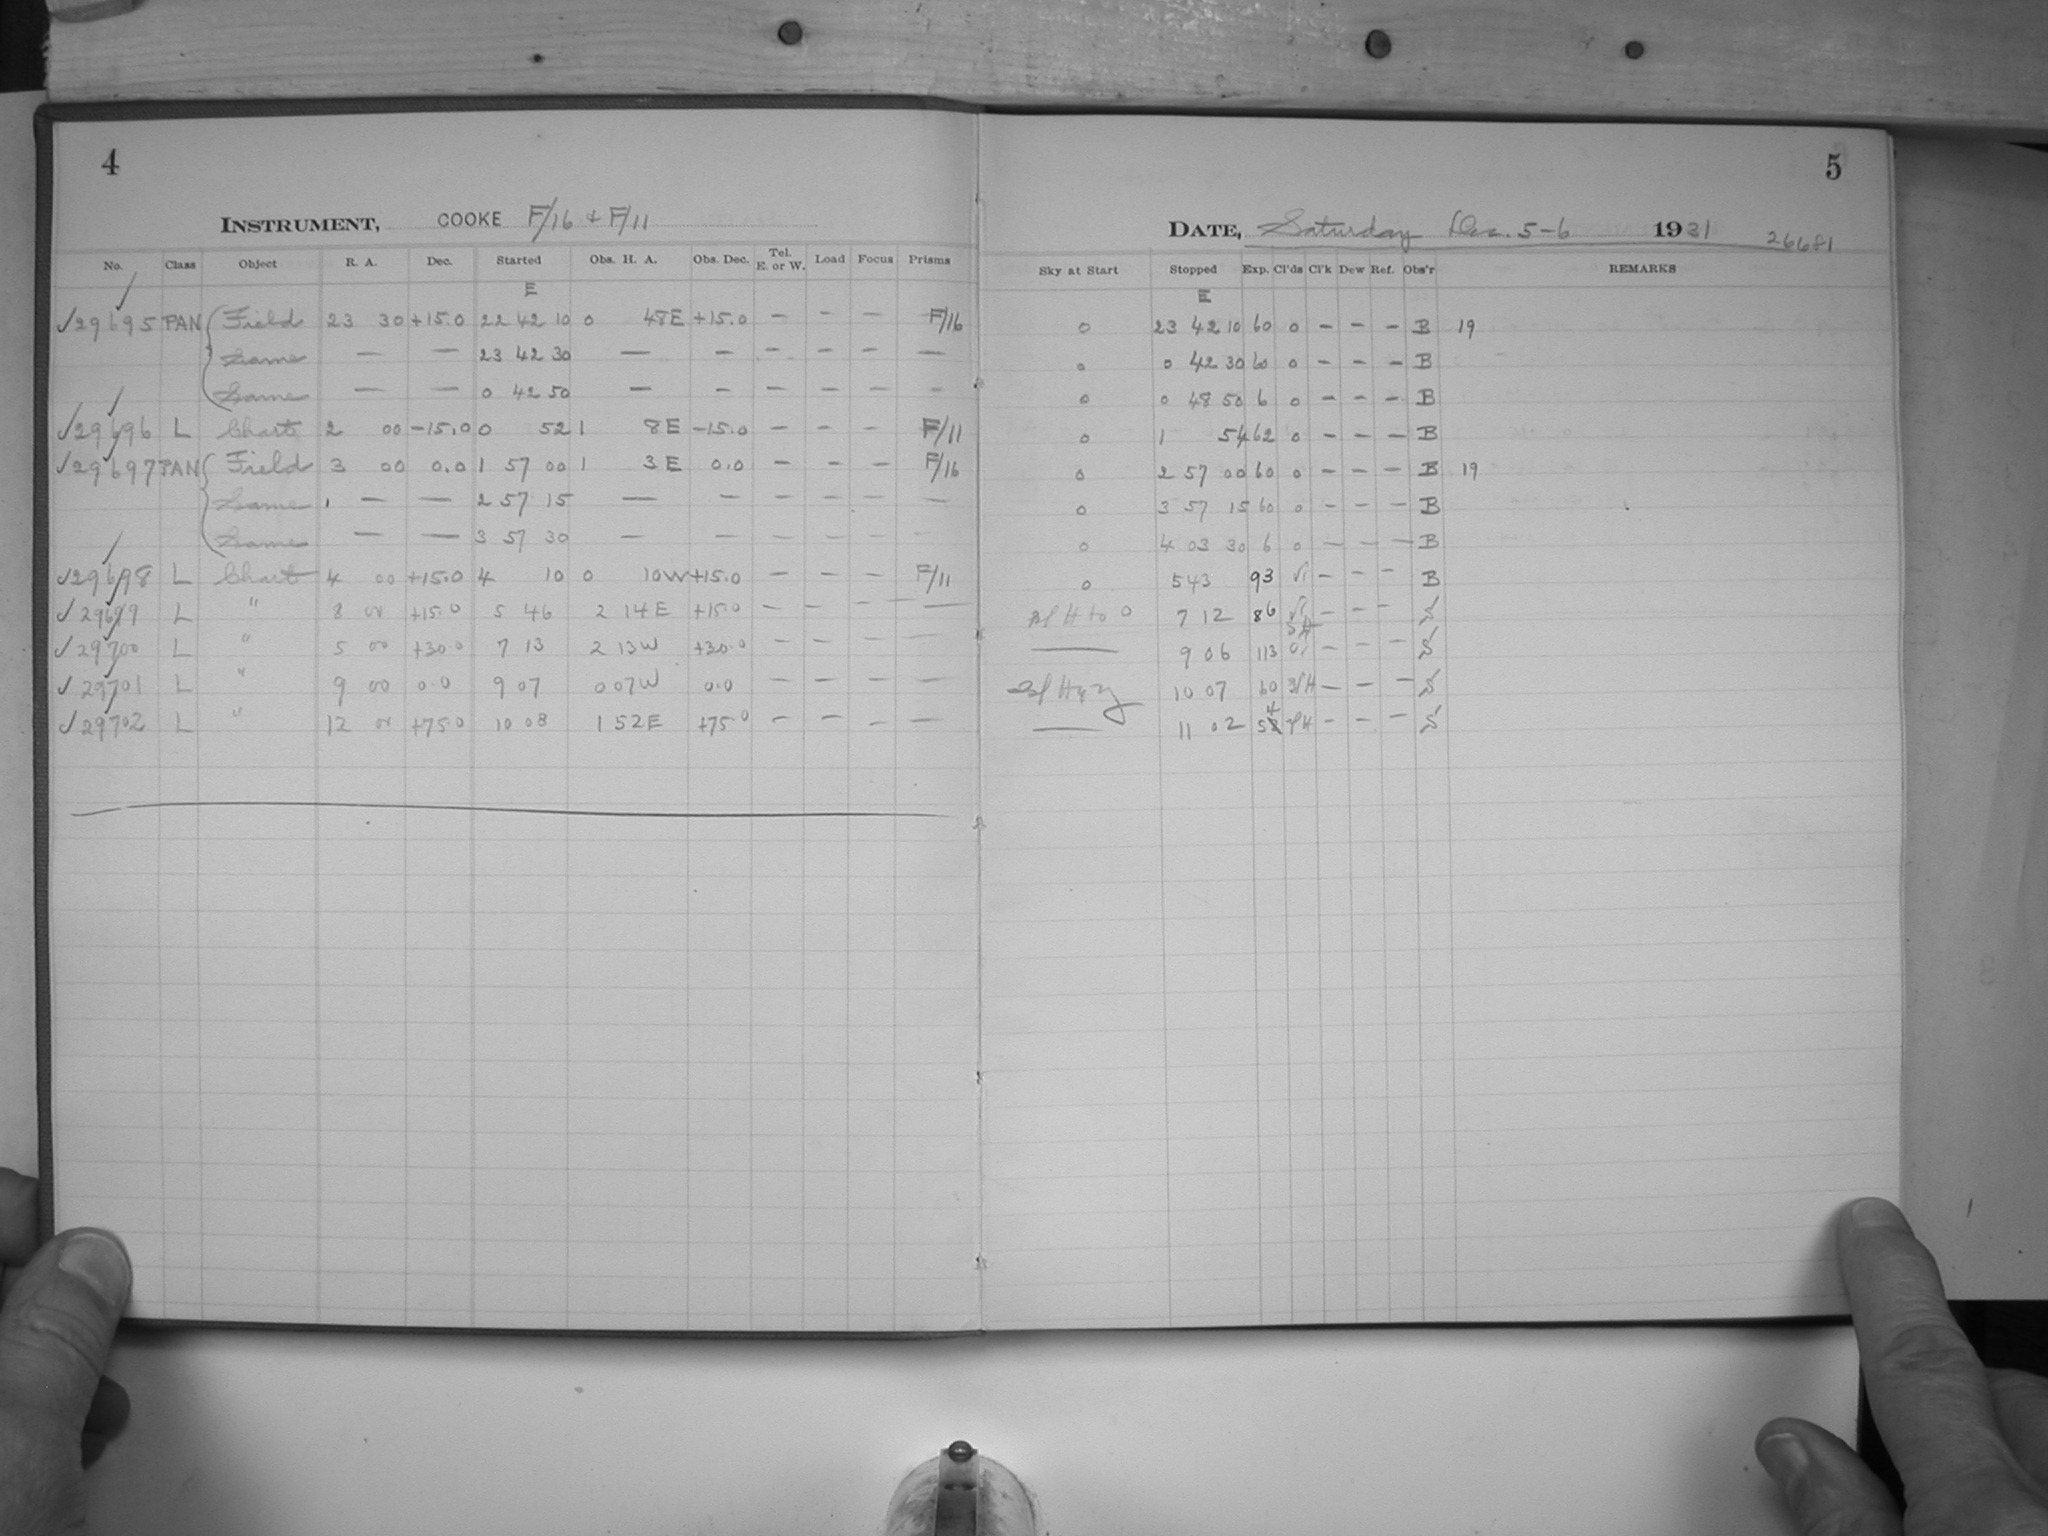 4
INSTRUMENT, COOKE F/16 + F/11
No. Class Object R. A. Dec. Started Obs. H. A. Obs. Dec. Tel. E. or W. Load Focus Prisms
E
√29695 PAN Field 23 30 +15.0 22 42 10 0 48E +15.0 — — — F/16
Same — — 23 42 30 — — — — — —
Same — — 0 42 50 — — — — — —
√29696 L Chart 2 00 -15.0 0 52 1 8E -15.0 — — — F/11
√29697 PAN Field 3 00 0.0 1 57 00 1 3E 0.0 — — — F/16
Same — — 2 57 15 — — — — — —
Same — — 3 57 30 — — — — — —
√29698 L Chart 4 00 +15.0 4 10 0 10W +15.0 — — — F/11
√29699 L " 8 00 +15.0 5 46 2 14E +15.0 — — — —
√29700 L " 5 00 +30.0 7 13 2 13W +30.0 — — — —
√29701 L " 9 00 0.0 9 07 0 07W 0.0 — — — —
√29702 L " 12 00 +75.0 10 08 1 52E +75.0 — — — —
5
DATE, Saturday Dec. 5-6 1931 26681
Sky at Start Stopped Exp. Cl'ds Cl'k Dew Ref. Obs'r REMARKS
E
0 23 42 10 60 0 — — — B 19
0 0 42 30 60 0 — — — B
0 0 48 50 6 0 — — — B
0 1 54 62 0 — — — B
0 2 57 00 60 0 — — — B 19
0 3 57 15 60 0 — — — B
0 4 03 30 6 0 — — — B
0 5 43 93 — — — B
7 12 86 — — — S
— 9 06 113 — — — S
10 07 60 — — — S
— 11 02 54 — — — S